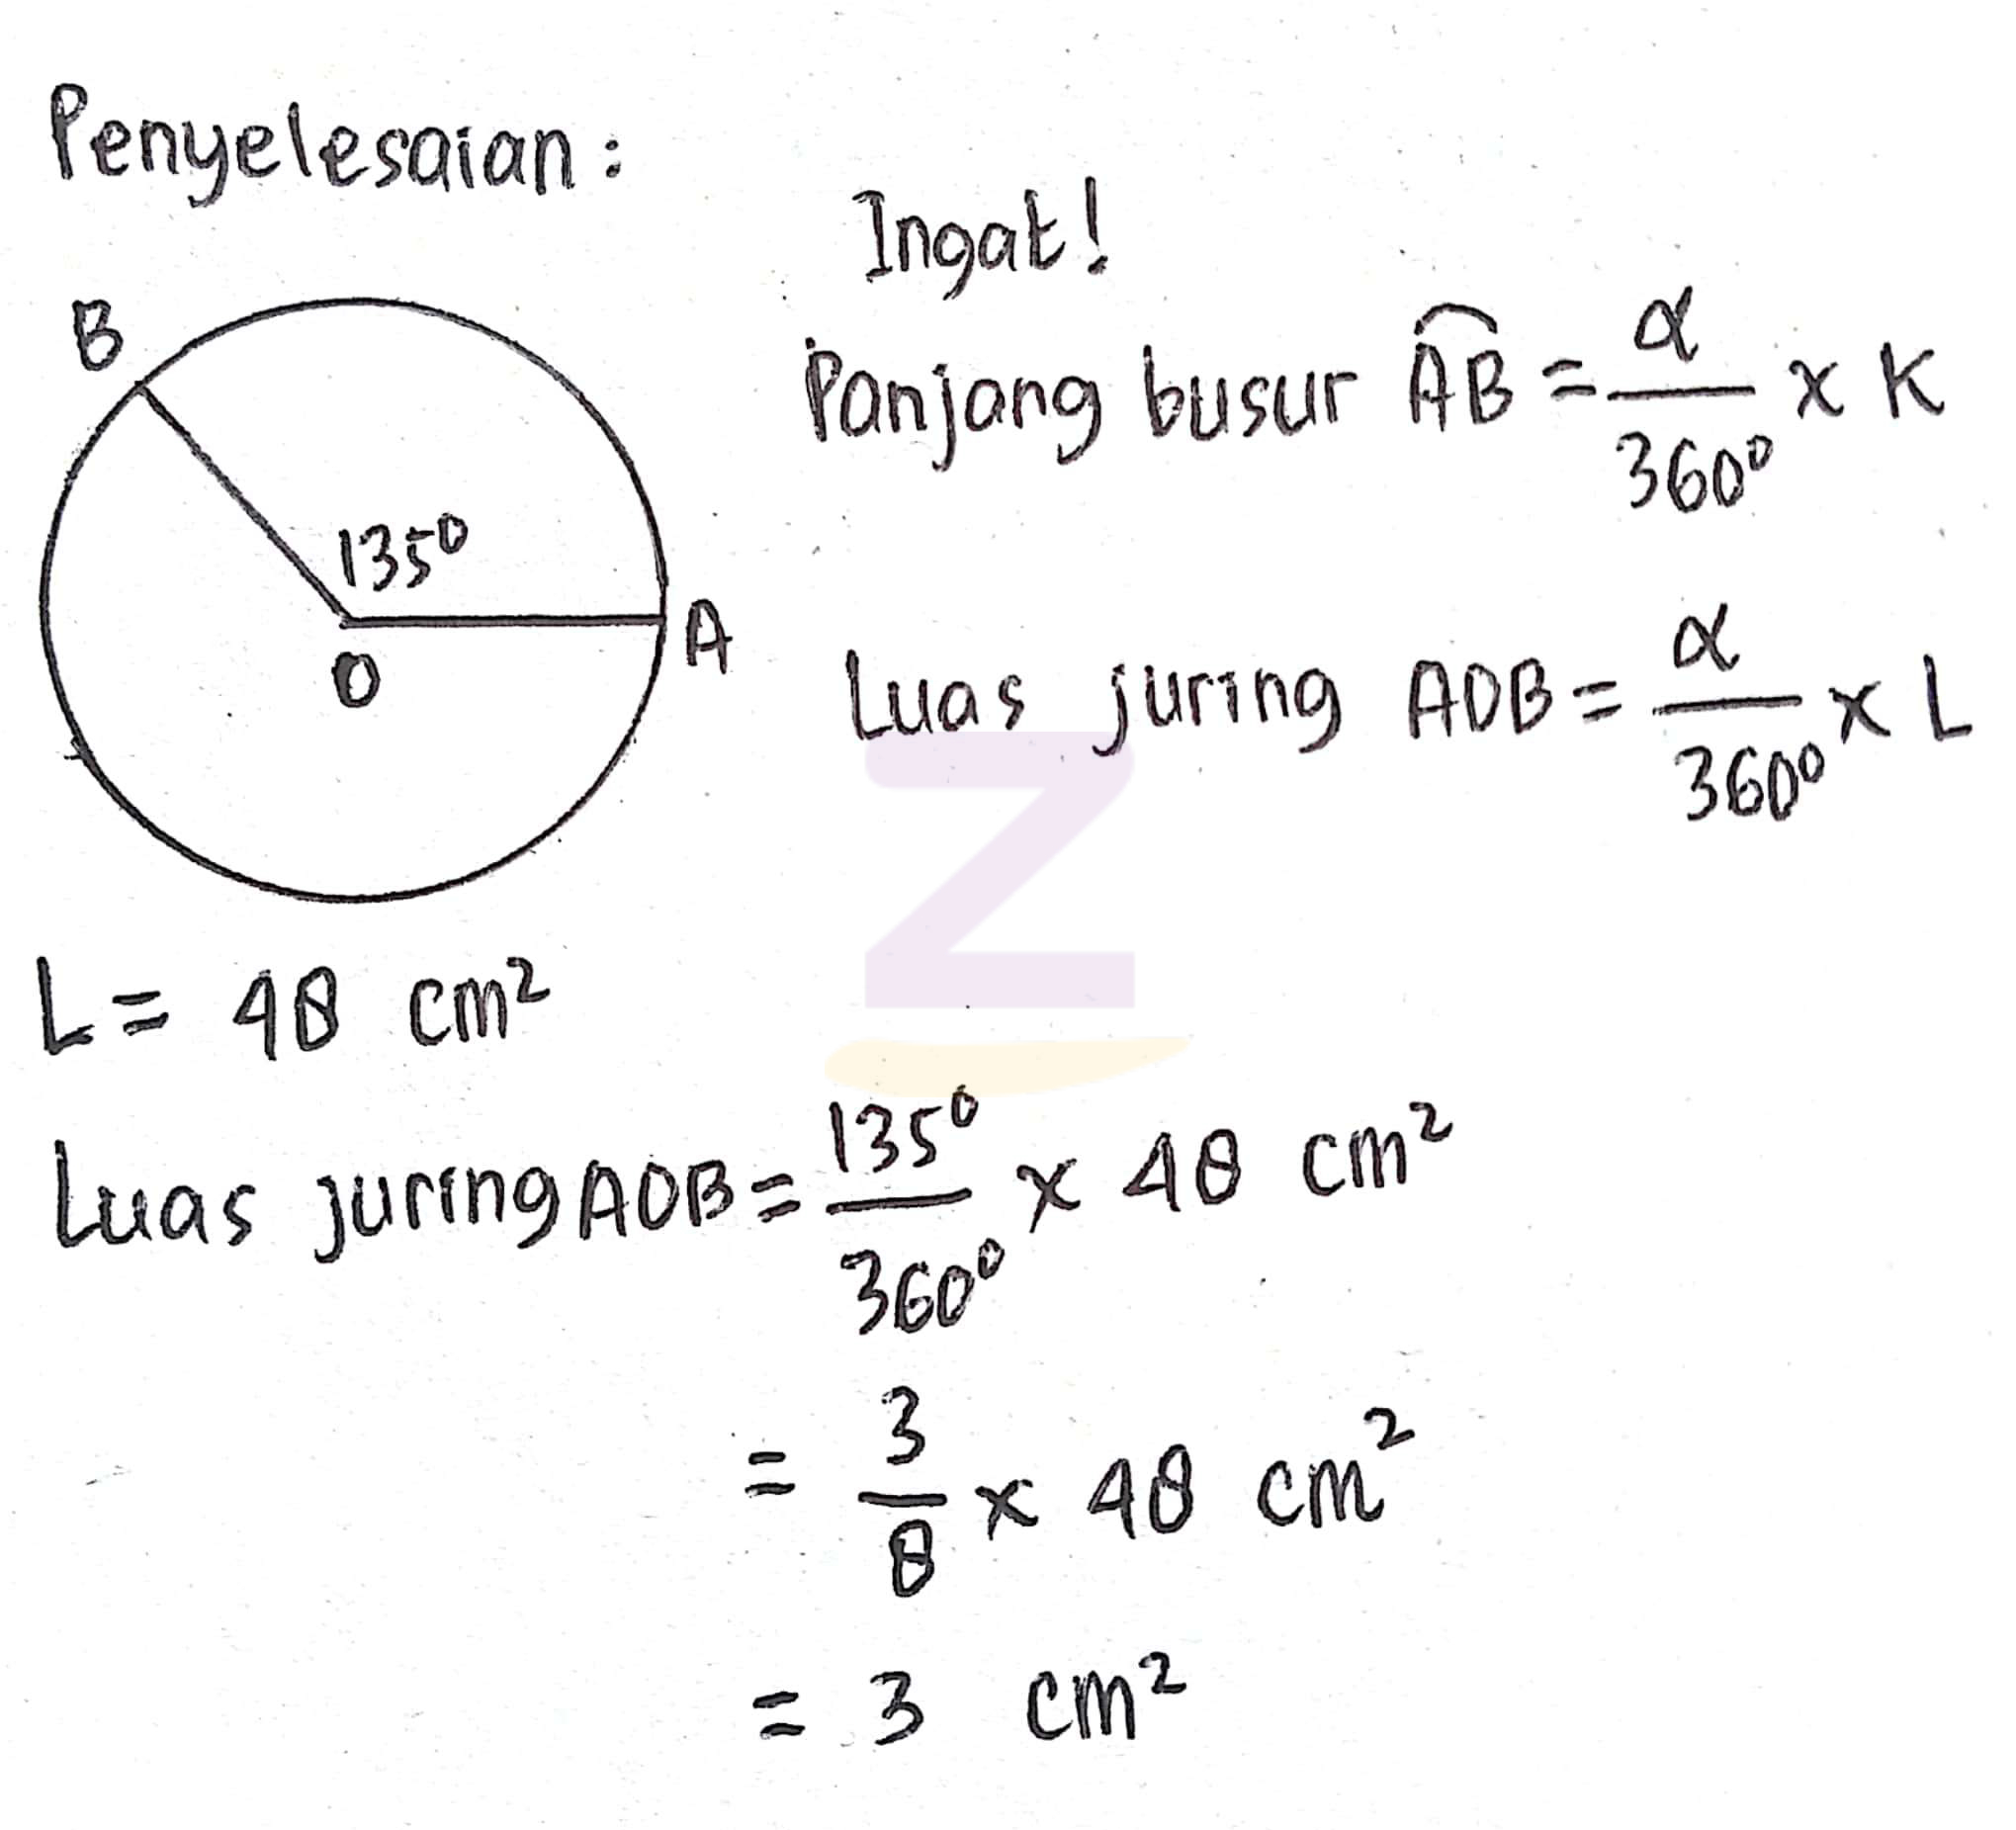 Penyelesaian :
Ingat!
B
Panjang busur A͡B = α/360⁰ x K
135⁰
A
O
Luas juring AOB = α/360⁰ x L
L = 48 cm²
Luas juring AOB = 135⁰/360⁰ x 48 cm²
= 3/8 x 48 cm²
= 3 cm²